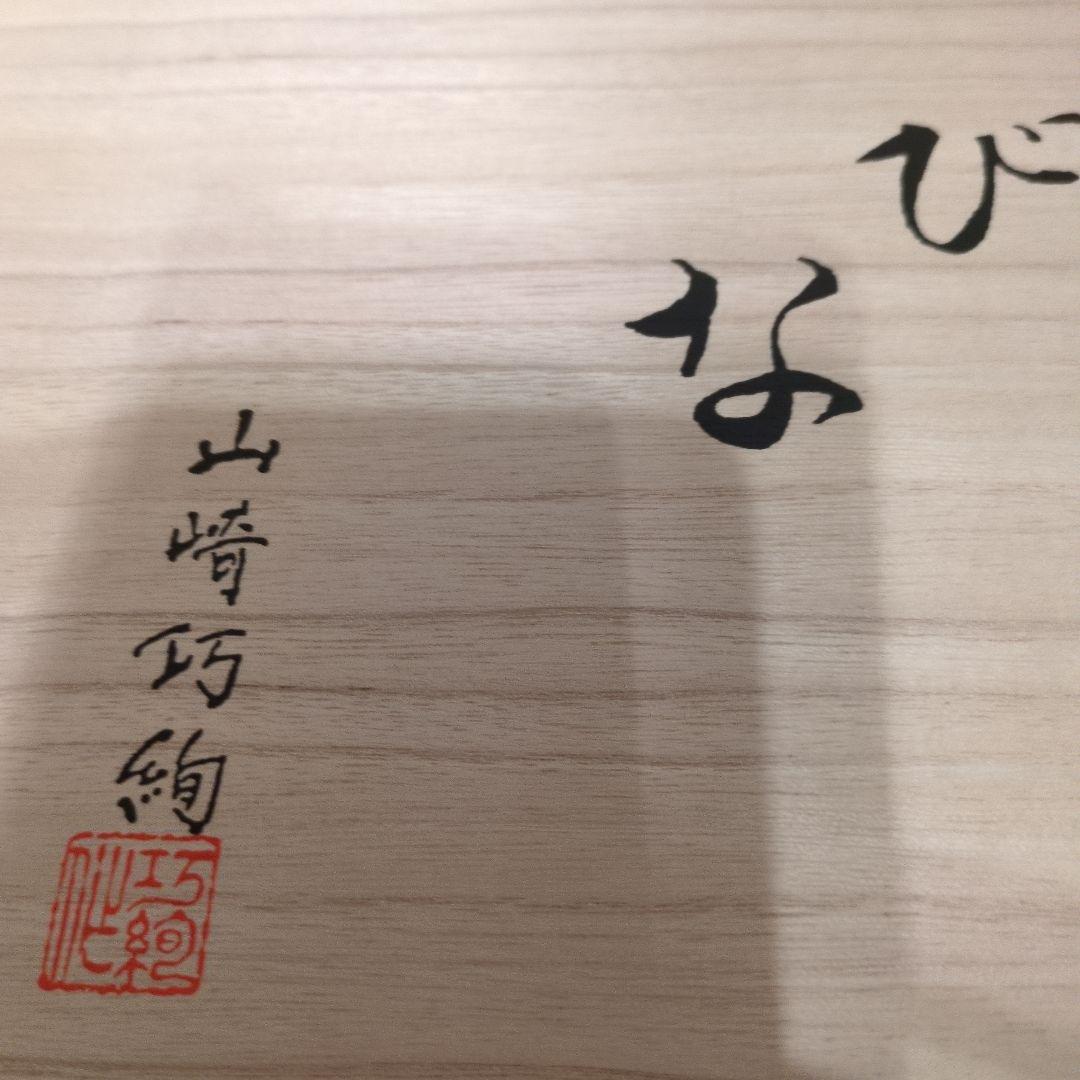 びな
山崎巧絢
巧絢作